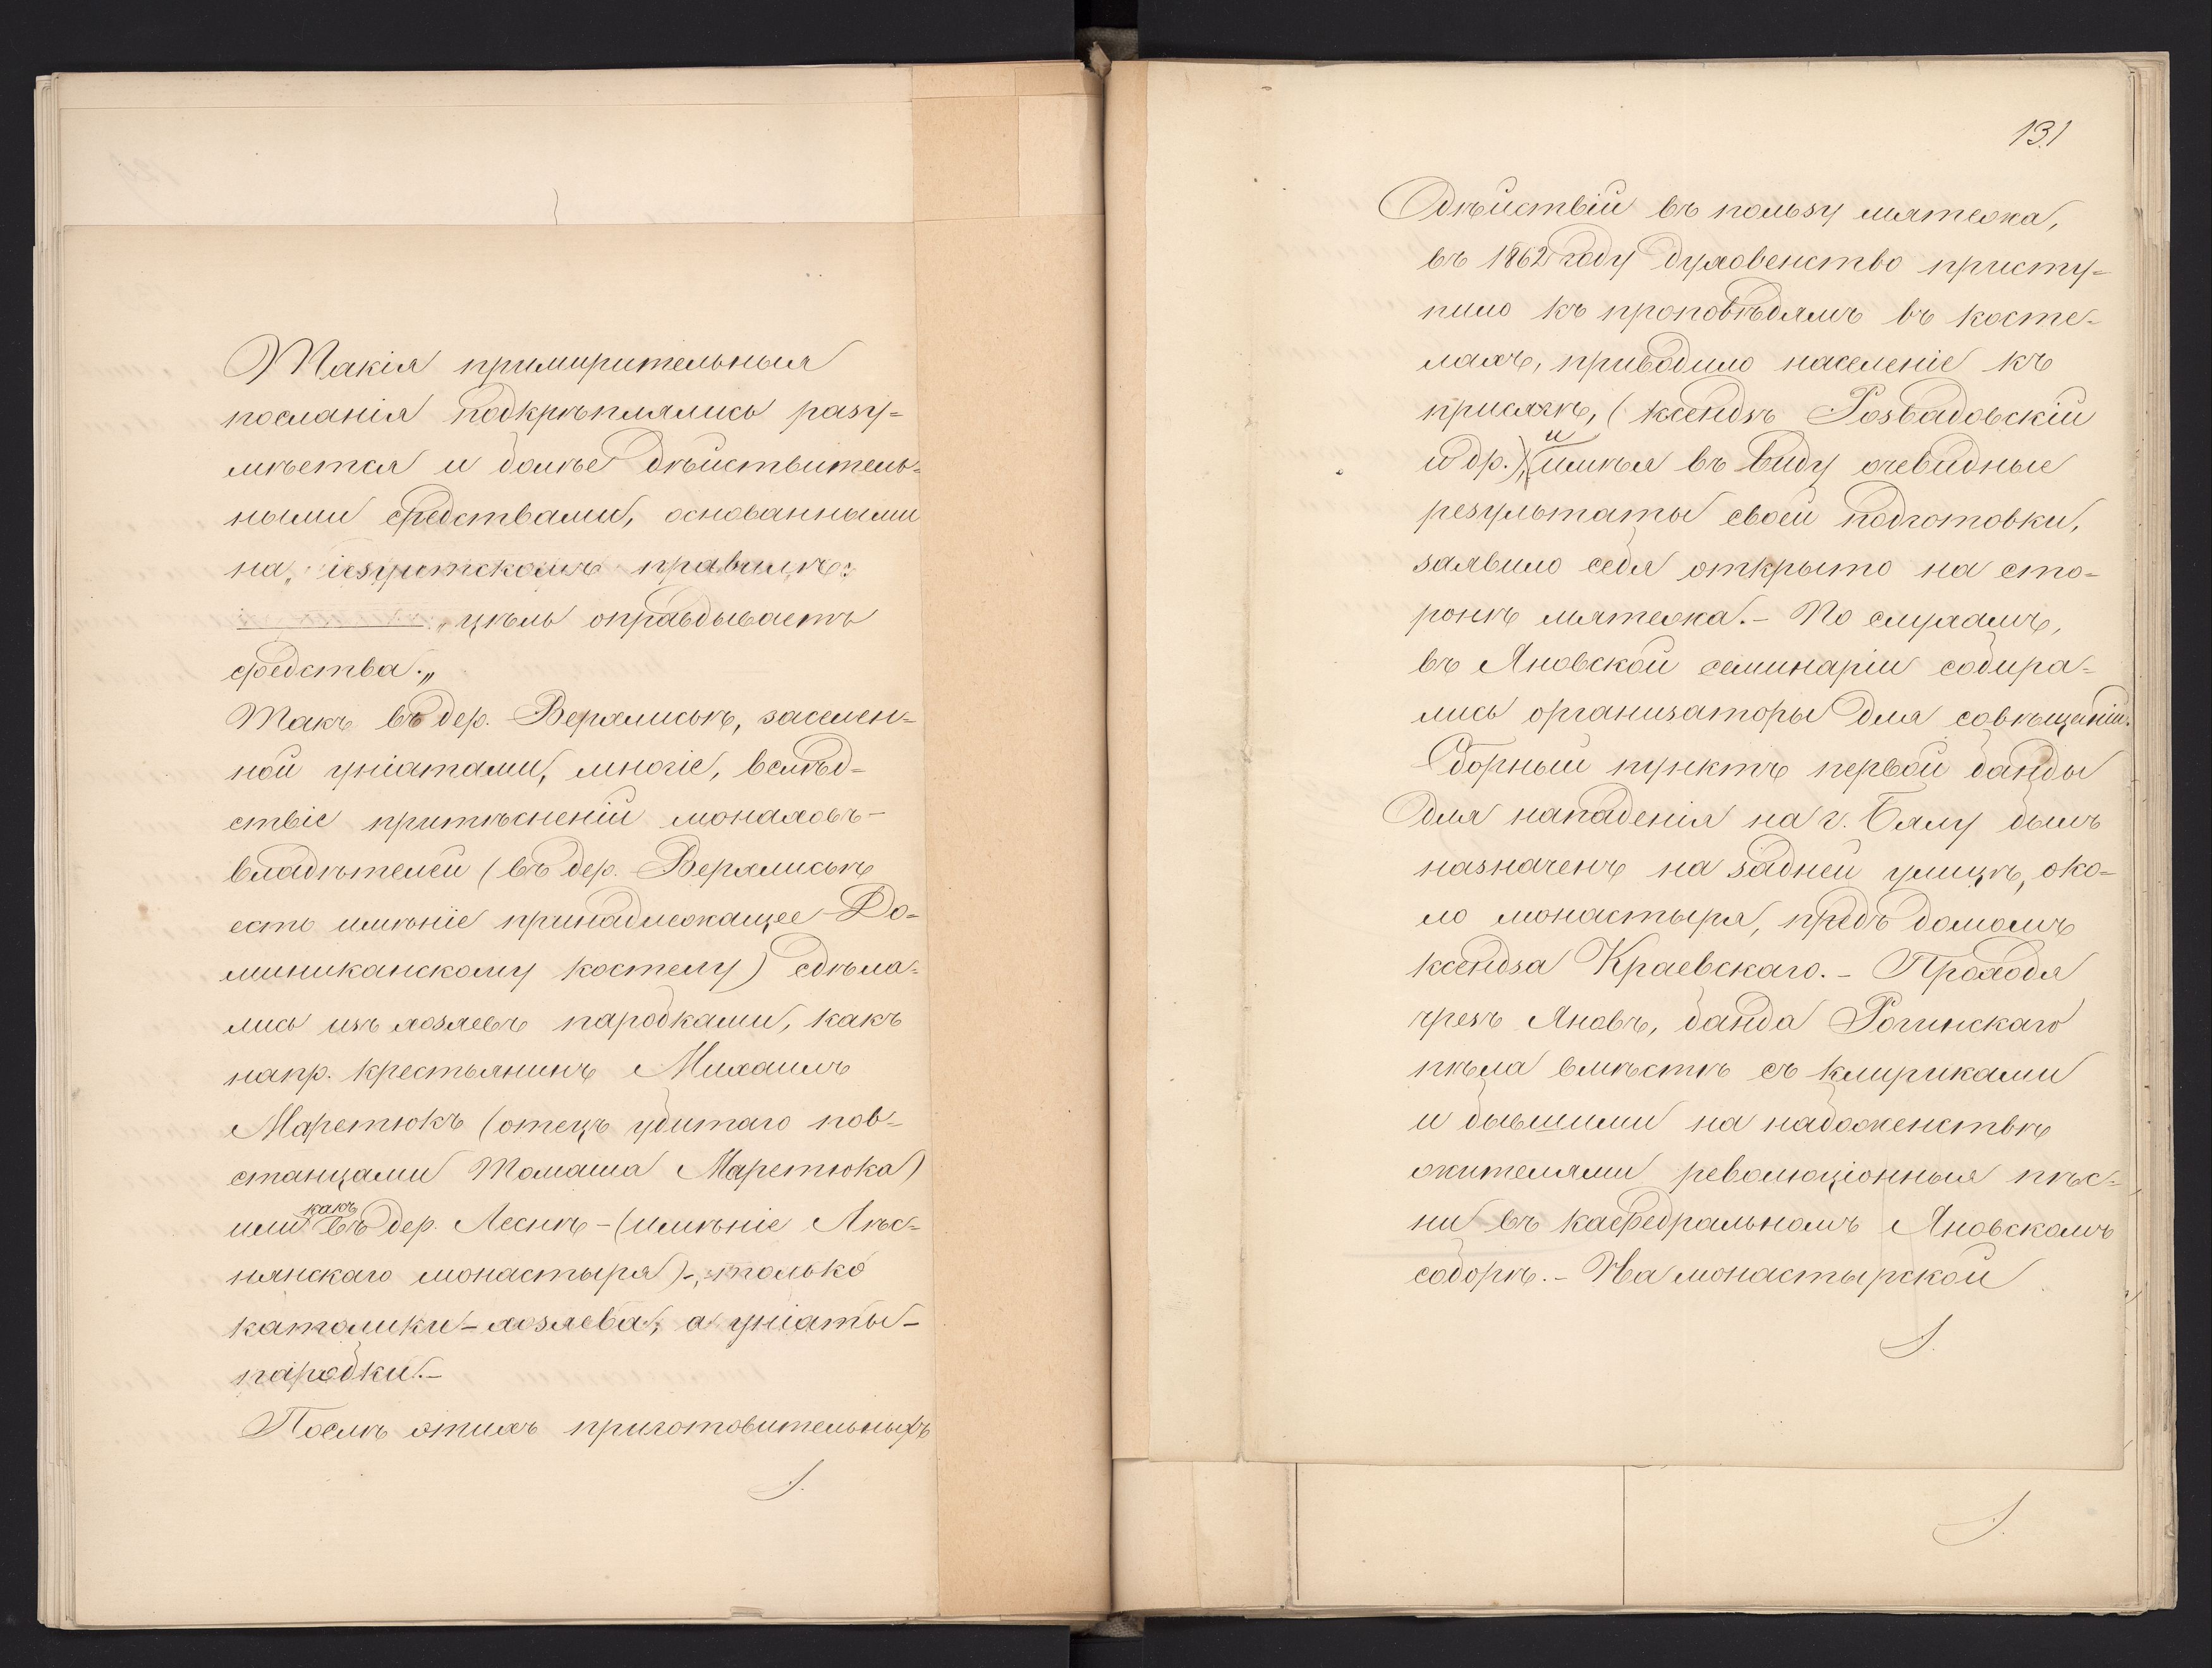 Такія примирительныя
посланія подкрѣплялись разу=
мѣется и болѣе дѣйствитель=
ными средствами, основанными
на іезуитскомъ правилѣ:
„цѣль оправдываетъ
средства.„
Такъ въ дер. Верхлисьѣ, заселен=
ной уніатами, многіе, вслѣд=
ствіе притѣсненій монаховъ-
владѣтелей (въ дер. Верхлисьѣ
есть имѣніе принадлежащее До=
миниканскому костелу) сдѣла=
лись изъ хозяевъ паробками, какъ
напр. крестьянинъ Михаилъ
Маретюкъ (отецъ убитаго пов=
станцами Томаша Маретюка)
или какъ въ дер. Леснѣ - (имѣніе Лѣс=
нянскаго монастыря) -, только
католики - хозяева, а уніаты -
паробки. -
Послѣ этихъ приготовительныхъ
131
дѣйствій въ пользу мятежа,
въ 1862 году духовенство присту=
пило къ проповѣдямъ въ косте=
лахъ, приводило населеніе къ
присягѣ, (ксендзъ Розвадовскій
и др.), и имѣя въ виду очевидные
результаты своей подготовки,
заявило себя открыто на сто=
ронѣ мятежа. - По слухамъ,
въ Яновской семинаріи собира=
лись организаторы для совѣщаній.
Сборный пунктъ первой банды
для нападенія на г. Бялу былъ
назначенъ на задней улицѣ, око=
ло монастыря, предъ домомъ
ксендза Краевскаго. - Проходя
чрезъ Яновъ, банда Рогинскаго
пѣла вмѣстѣ съ клириками
и бывшими на набоженствѣ
жителями революціонныя пѣс=
ни въ каѳедральномъ Яновскомъ
соборѣ. - На монастырской